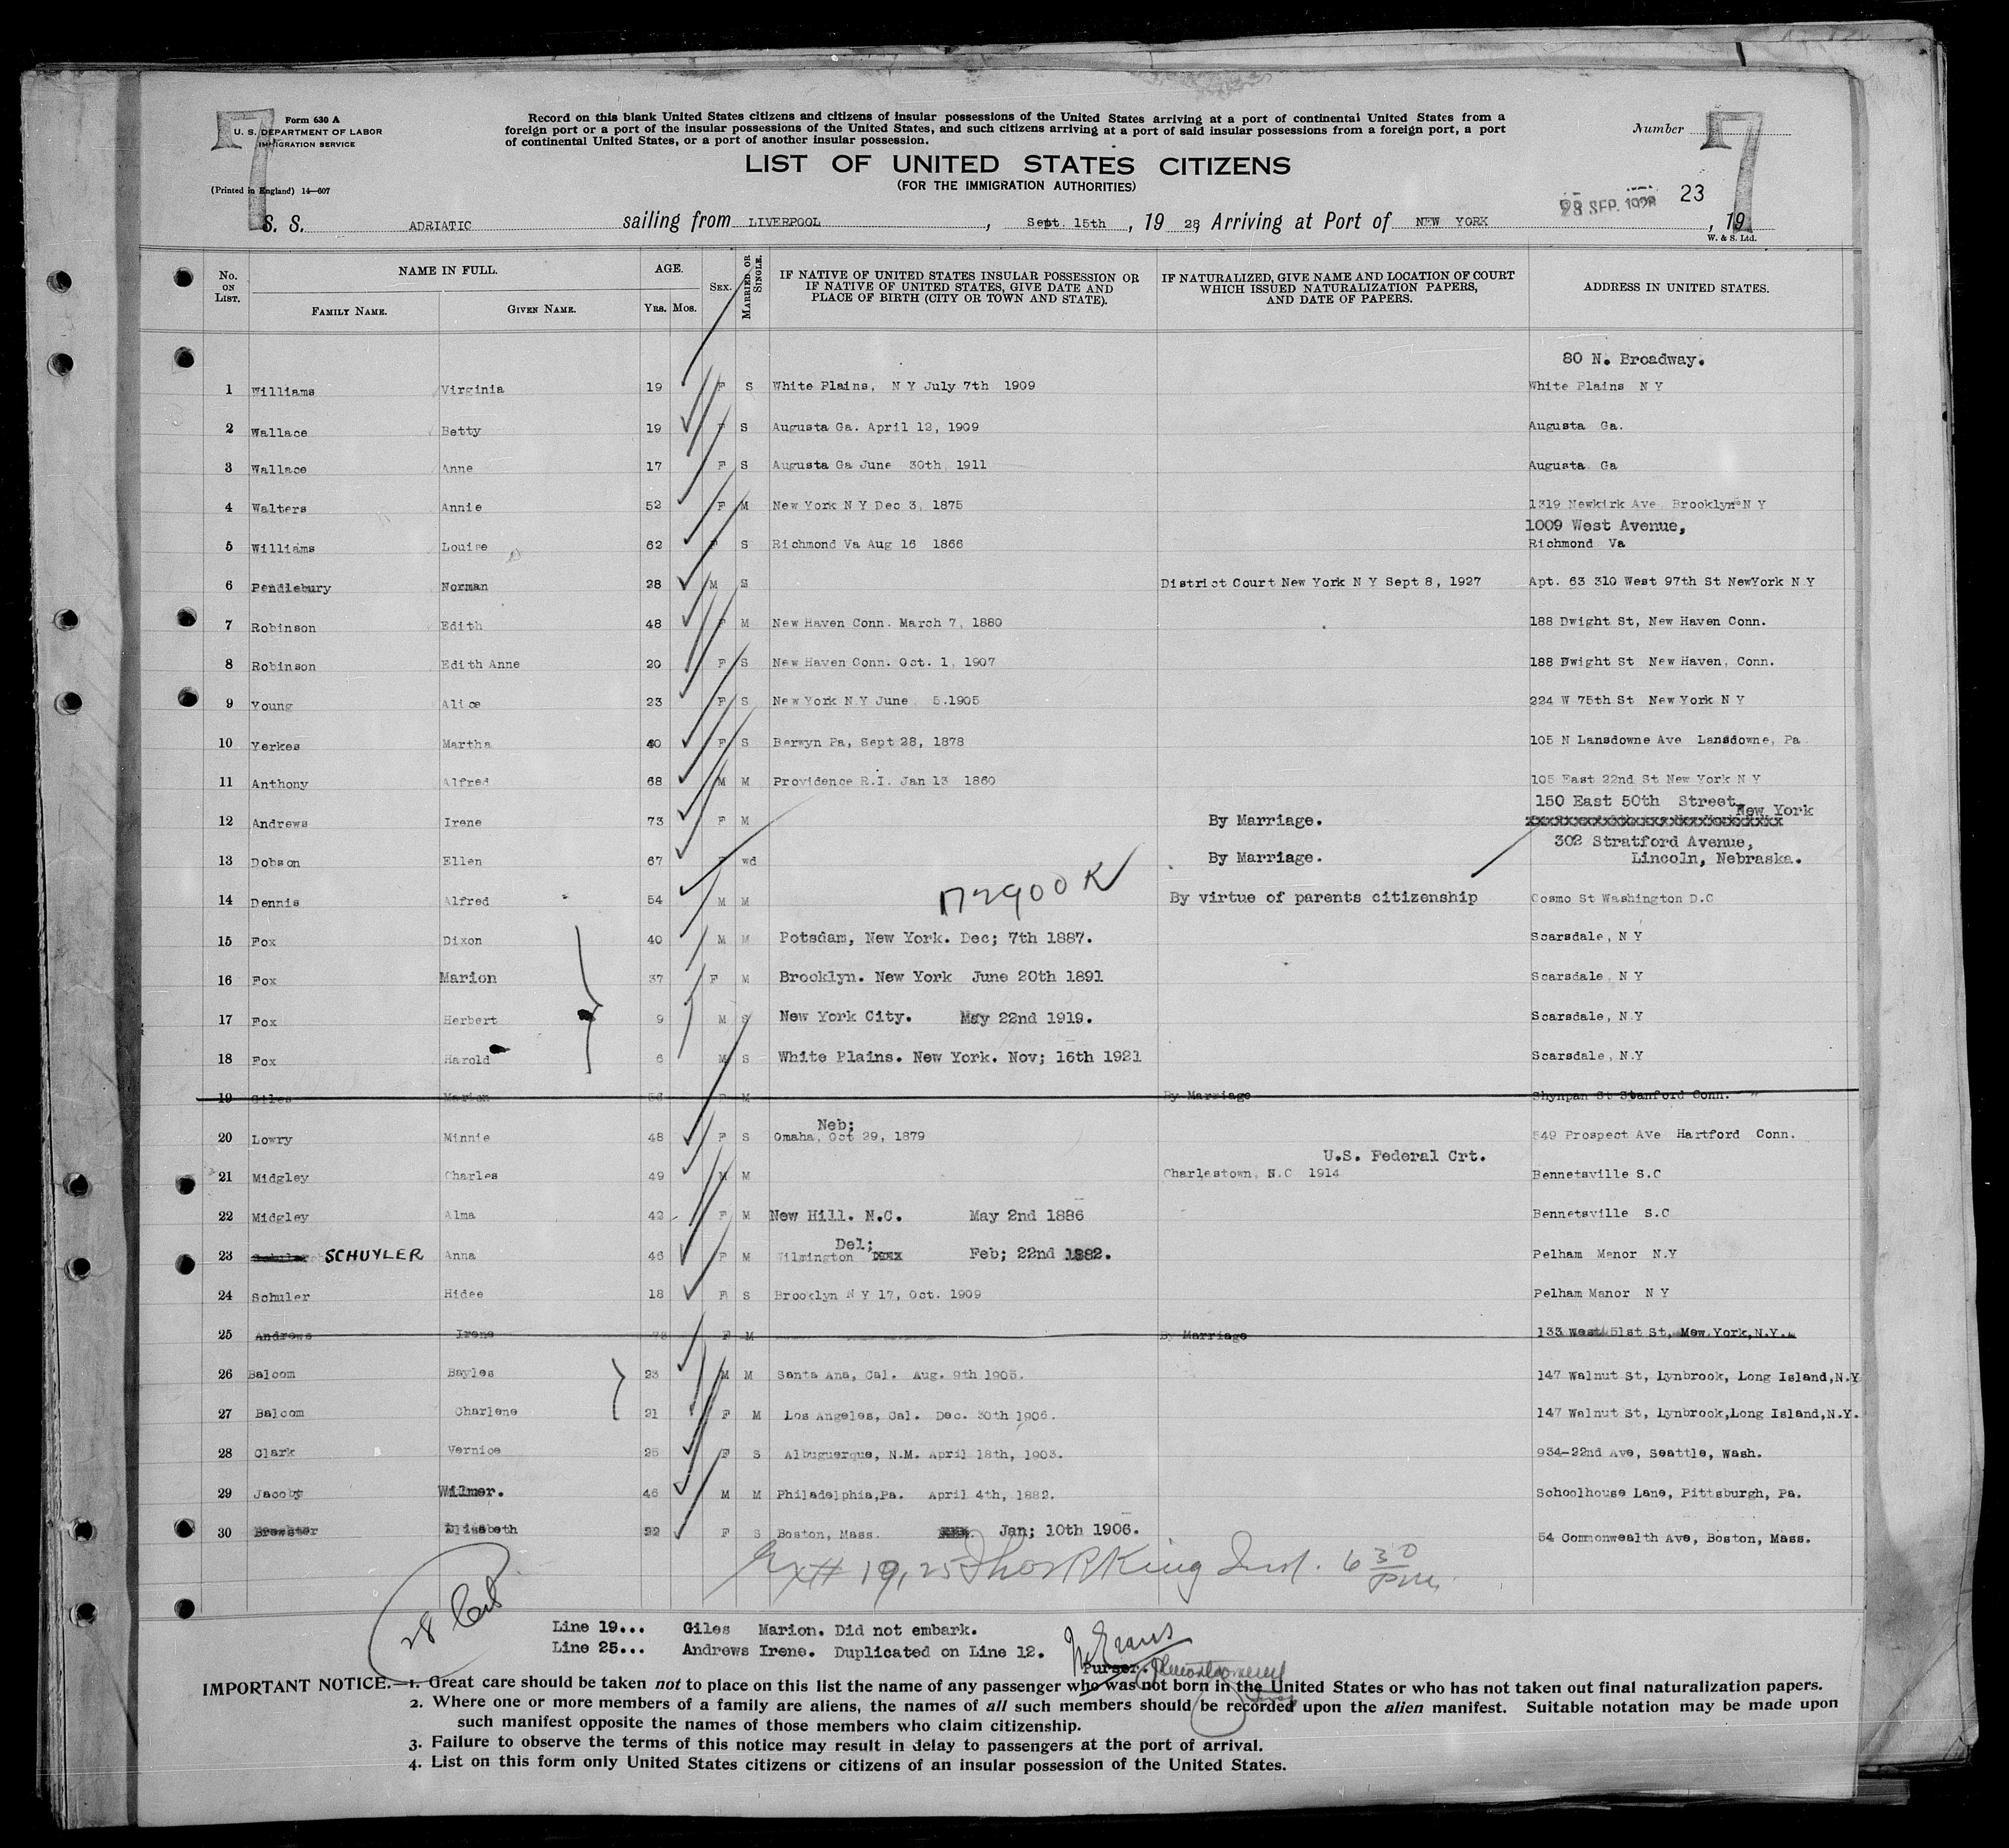 7
7
Form 630 A
U. S. DEPARTMENT OF LABOR
IMMIGRATION SERVICE
(Printed in England) 14—607
Record on this blank United States citizens and citizens of insular possessions of the United States arriving at a port of continental United States from a
foreign port or a port of the insular possessions of the United States, and such citizens arriving at a port of said insular possessions from a foreign port, a port
of continental United States, or a port of another insular possession.
Number
LIST OF UNITED STATES CITIZENS
(FOR THE IMMIGRATION AUTHORITIES)
23 SEP. 1928 23
S. S. ADRIATIC sailing from LIVERPOOL, Sept. 15th, 19 28, Arriving at Port of NEW YORK, 19
W. & S. Ltd.
No. ON LIST. NAME IN FULL. FAMILY NAME. GIVEN NAME. AGE. YRS. MOS. SEX. MARRIED OR SINGLE. IF NATIVE OF UNITED STATES INSULAR POSSESSION OR IF NATIVE OF UNITED STATES, GIVE DATE AND PLACE OF BIRTH (CITY OR TOWN AND STATE). IF NATURALIZED, GIVE NAME AND LOCATION OF COURT WHICH ISSUED NATURALIZATION PAPERS, AND DATE OF PAPERS. ADDRESS IN UNITED STATES.
80 N. Broadway.
1 Williams Virginia 19 F S White Plains, N Y July 7th 1909 White Plains N Y
2 Wallace Betty 19 F S Augusta Ga. April 12, 1909 Augusta Ga.
3 Wallace Anne 17 F S Augusta Ga June 30th, 1911 Augusta Ga
4 Walters Annie 52 F M New York N Y Dec 3, 1875 1319 Newkirk Ave, Brooklyn N Y
1009 West Avenue,
5 Williams Louise 62 F S Richmond Va Aug 16 1866 Richmond Va
6 Pendlebury Norman 28 M S District Court New York N Y Sept 8, 1927 Apt. 63 310 West 97th St NewYork N.Y
7 Robinson Edith 48 F M New Haven Conn. March 7, 1880 188 Dwight St, New Haven Conn.
8 Robinson Edith Anne 20 F S New Haven Conn. Oct. 1, 1907 188 Dwight St New Haven, Conn.
9 Young Alice 23 F S New York N.Y June 5.1905 224 W 75th St New York N Y
10 Yerkes Martha 40 F S Berwyn Pa, Sept 28, 1878 105 N Lansdowne Ave Lansdowne, Pa
11 Anthony Alfred 68 M M Providence R.I. Jan 13 1860 105 East 22nd St New York N Y
150 East 50th Street New York
12 Andrews Irene 73 F M By Marriage. xxxxxxxxxxxxxxxxxxxxxxxxxxx
302 Stratford Avenue,
13 Dobson Ellen 67 F wd By Marriage. Lincoln, Nebraska.
14 Dennis Alfred 54 M M By virtue of parents citizenship Cosmo St Washington D.C
15 Fox Dixon 40 M M Potsdam, New York. Dec; 7th 1887. Scarsdale, N Y
16 Fox Marion 37 F M Brooklyn. New York June 20th 1891 Scarsdale, N Y
17 Fox Herbert 9 M S New York City. May 22nd 1919. Scarsdale, N.Y
18 Fox Harold 6 M S White Plains. New York. Nov; 16th 1921 Scarsdale, N.Y
19 Giles Marion 56 F M By Marriage Shynpan St Stanford Conn.
Neb;
20 Lowry Minnie 48 F S Omaha, Oct 29, 1879 549 Prospect Ave Hartford Conn.
U.S. Federal Crt.
21 Midgley Charles 49 M M Charlestown, N.C 1914 Bennetsville S.C
22 Midgley Alma 42 F M New Hill. N.C. May 2nd 1886 Bennetsville S.C
Del;
23 SCHUYLER Anna 46 F M Wilmington Feb; 22nd 1882. Pelham Manor N.Y
24 Schuler Hidee 18 F S Brooklyn N Y 17, Oct. 1909 Pelham Manor N Y
25 Andrews Irene 73 F M By Marriage 133 West 51st St, New York, N.Y.
26 Balcom Bayles 23 M M Santa Ana, Cal. Aug. 9th 1905. 147 Walnut St, Lynbrook, Long Island,N.Y
27 Balcom Charlene 21 F M Los Angeles, Cal. Dec. 30th 1906. 147 Walnut St, Lynbrook,Long Island,N.Y.
28 Clark Vernice 25 F S Albuguerque, N.M. April 18th, 1903. 934-22nd Ave, Seattle, Wash.
29 Jacoby Wilmer. 46 M M Philadelphia,Pa. April 4th, 1882. Schoolhouse Lane, Pittsburgh, Pa.
30 Brewster Elisabeth 22 F S Boston, Mass. Jan; 10th 1906. 54 Commonwealth Ave, Boston, Mass.
19, 25 King Insp. 6 30 P.M.
28
Line 19... Giles Marion. Did not embark.
Line 25... Andrews Irene. Duplicated on Line 12.
Evans
Purser.
IMPORTANT NOTICE.—1. Great care should be taken not to place on this list the name of any passenger who was not born in the United States or who has not taken out final naturalization papers.
2. Where one or more members of a family are aliens, the names of all such members should be recorded upon the alien manifest. Suitable notation may be made upon
such manifest opposite the names of those members who claim citizenship.
3. Failure to observe the terms of this notice may result in delay to passengers at the port of arrival.
4. List on this form only United States citizens or citizens of an insular possession of the United States.